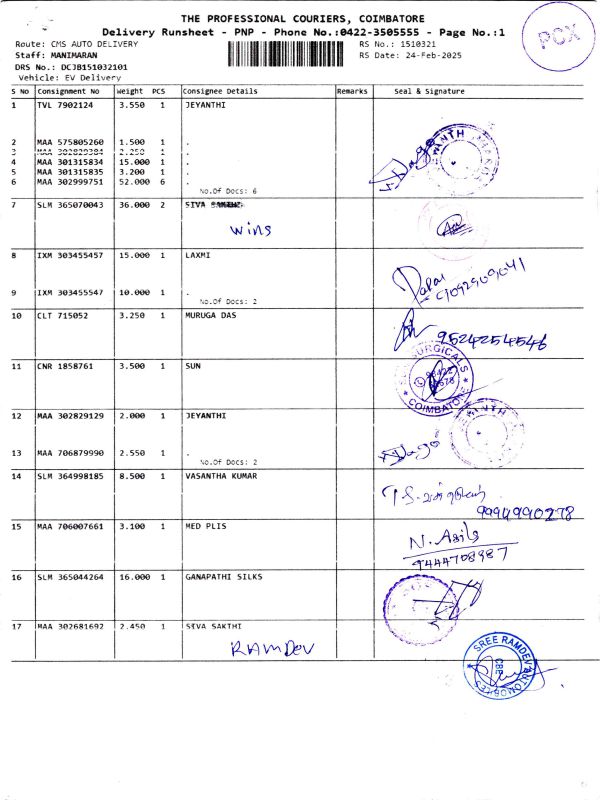 THE PROFESSIONAL COURIERS, COIMBATORE
Delivery Runsheet - PNP - Phone No.:0422-3505555 - Page No.:1
PCX
Route: CMS AUTO DELIVERY
RS No.: 1510321
Staff: MANIMARAN
RS Date: 24-Feb-2025
DRS No.: DCJB151032101
Vehicle: EV Delivery
S No Consignment No Weight PCS Consignee Details Remarks Seal & Signature
1 TVL 7902124 3.550 1 JEYANTHI
2 MAA 575805260 1.500 1 .
3 MAA 302829384 2.250 1 .
4 MAA 301315834 15.000 1 .
5 MAA 301315835 3.200 1 .
6 MAA 302999751 52.000 6 .
No.Of Docs: 6
7 SLM 365070043 36.000 2 SIVA
wins
8 IXM 303455457 15.000 1 LAXMI
9 IXM 303455547 10.000 1 .
No.Of Docs: 2
10 CLT 715052 3.250 1 MURUGA DAS
9524254546
11 CNR 1858761 3.500 1 SUN
SURGICALS
COIMBATORE
12 MAA 302829129 2.000 1 JEYANTHI
13 MAA 706879990 2.550 1 .
No.Of Docs: 2
14 SLM 364998185 8.500 1 VASANTHA KUMAR
9994990278
15 MAA 706007661 3.100 1 MED PLIS
9444708987
16 SLM 365044264 16.000 1 GANAPATHI SILKS
17 MAA 302681692 2.450 1 SIVA SAKTHI
RAMDEV
SREE RAMDEV AUTOMOBILES
CBE